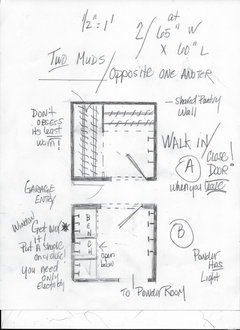 1/2" = 1'
2/ at
65" W
x 60" L
TWO MUDS/
OPPOSITE ONE ANOTHER
DON'T
OBSESS
Its least
worn!
Shared Pantry
Wall
WALK IN/
CLOSE!
DOOR!
A
when you
GARAGE
ENTRY
Window
Get
it!
Put A
on
you need
only
BENCH
open
below
B
Powder
Has
Light
TO POWDER ROOM